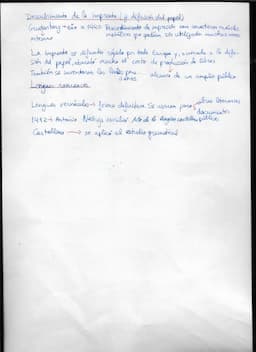 Descubrimiento de la imprenta (y difusión del papel)
Gutenberg → En a 1440 Procedimiento de impresión con caracteres móviles
metálicos que podían ser utilizados muchas veces
La imprenta se difundió rápido por toda Europa y, asociado a la difu-
sión del papel, abarató mucho el coste de producción de libros
También se inventaron las alcance de un amplio público
Lengua romance
Lenguas vernáculas → forma definitiva. Se usaron para obras literarias
documentos
1492 → Antonio Nebrija escribió Arte de la lengua castellana público
Castellano → se aplicó al estudio gramatical